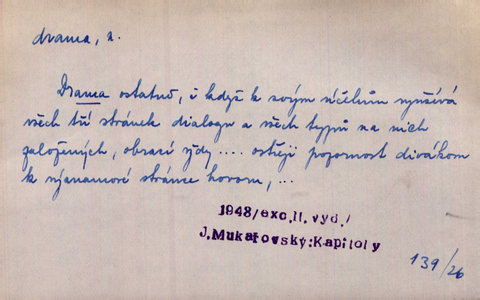 drama, n.
Drama ostatně, i když k svým účelům využívá
všech tří stránek dialogu a všech typů na nich
založených, obrací vždy .... ostřeji pozornost divákovu
k významové stránce hovoru, ...
1948/exc.II.vyd./
J.Mukařovský:Kapitoly
139/26